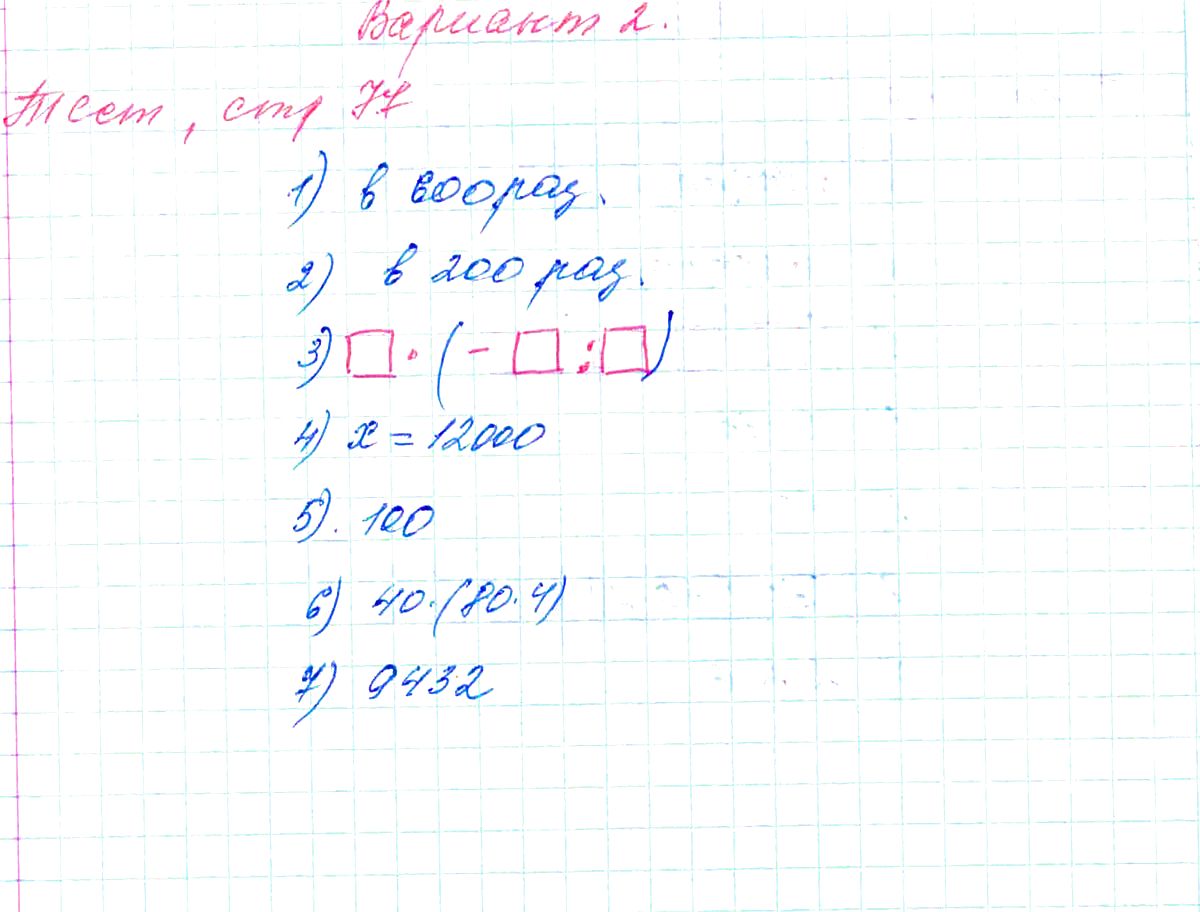 Вариант 2.
Тест, стр 77
1) в 600 раз.
2) в 200 раз.
3) □ · ( - □ : □ )
4) x = 12000
5). 100
6) 40·(80·4)
7) 9432